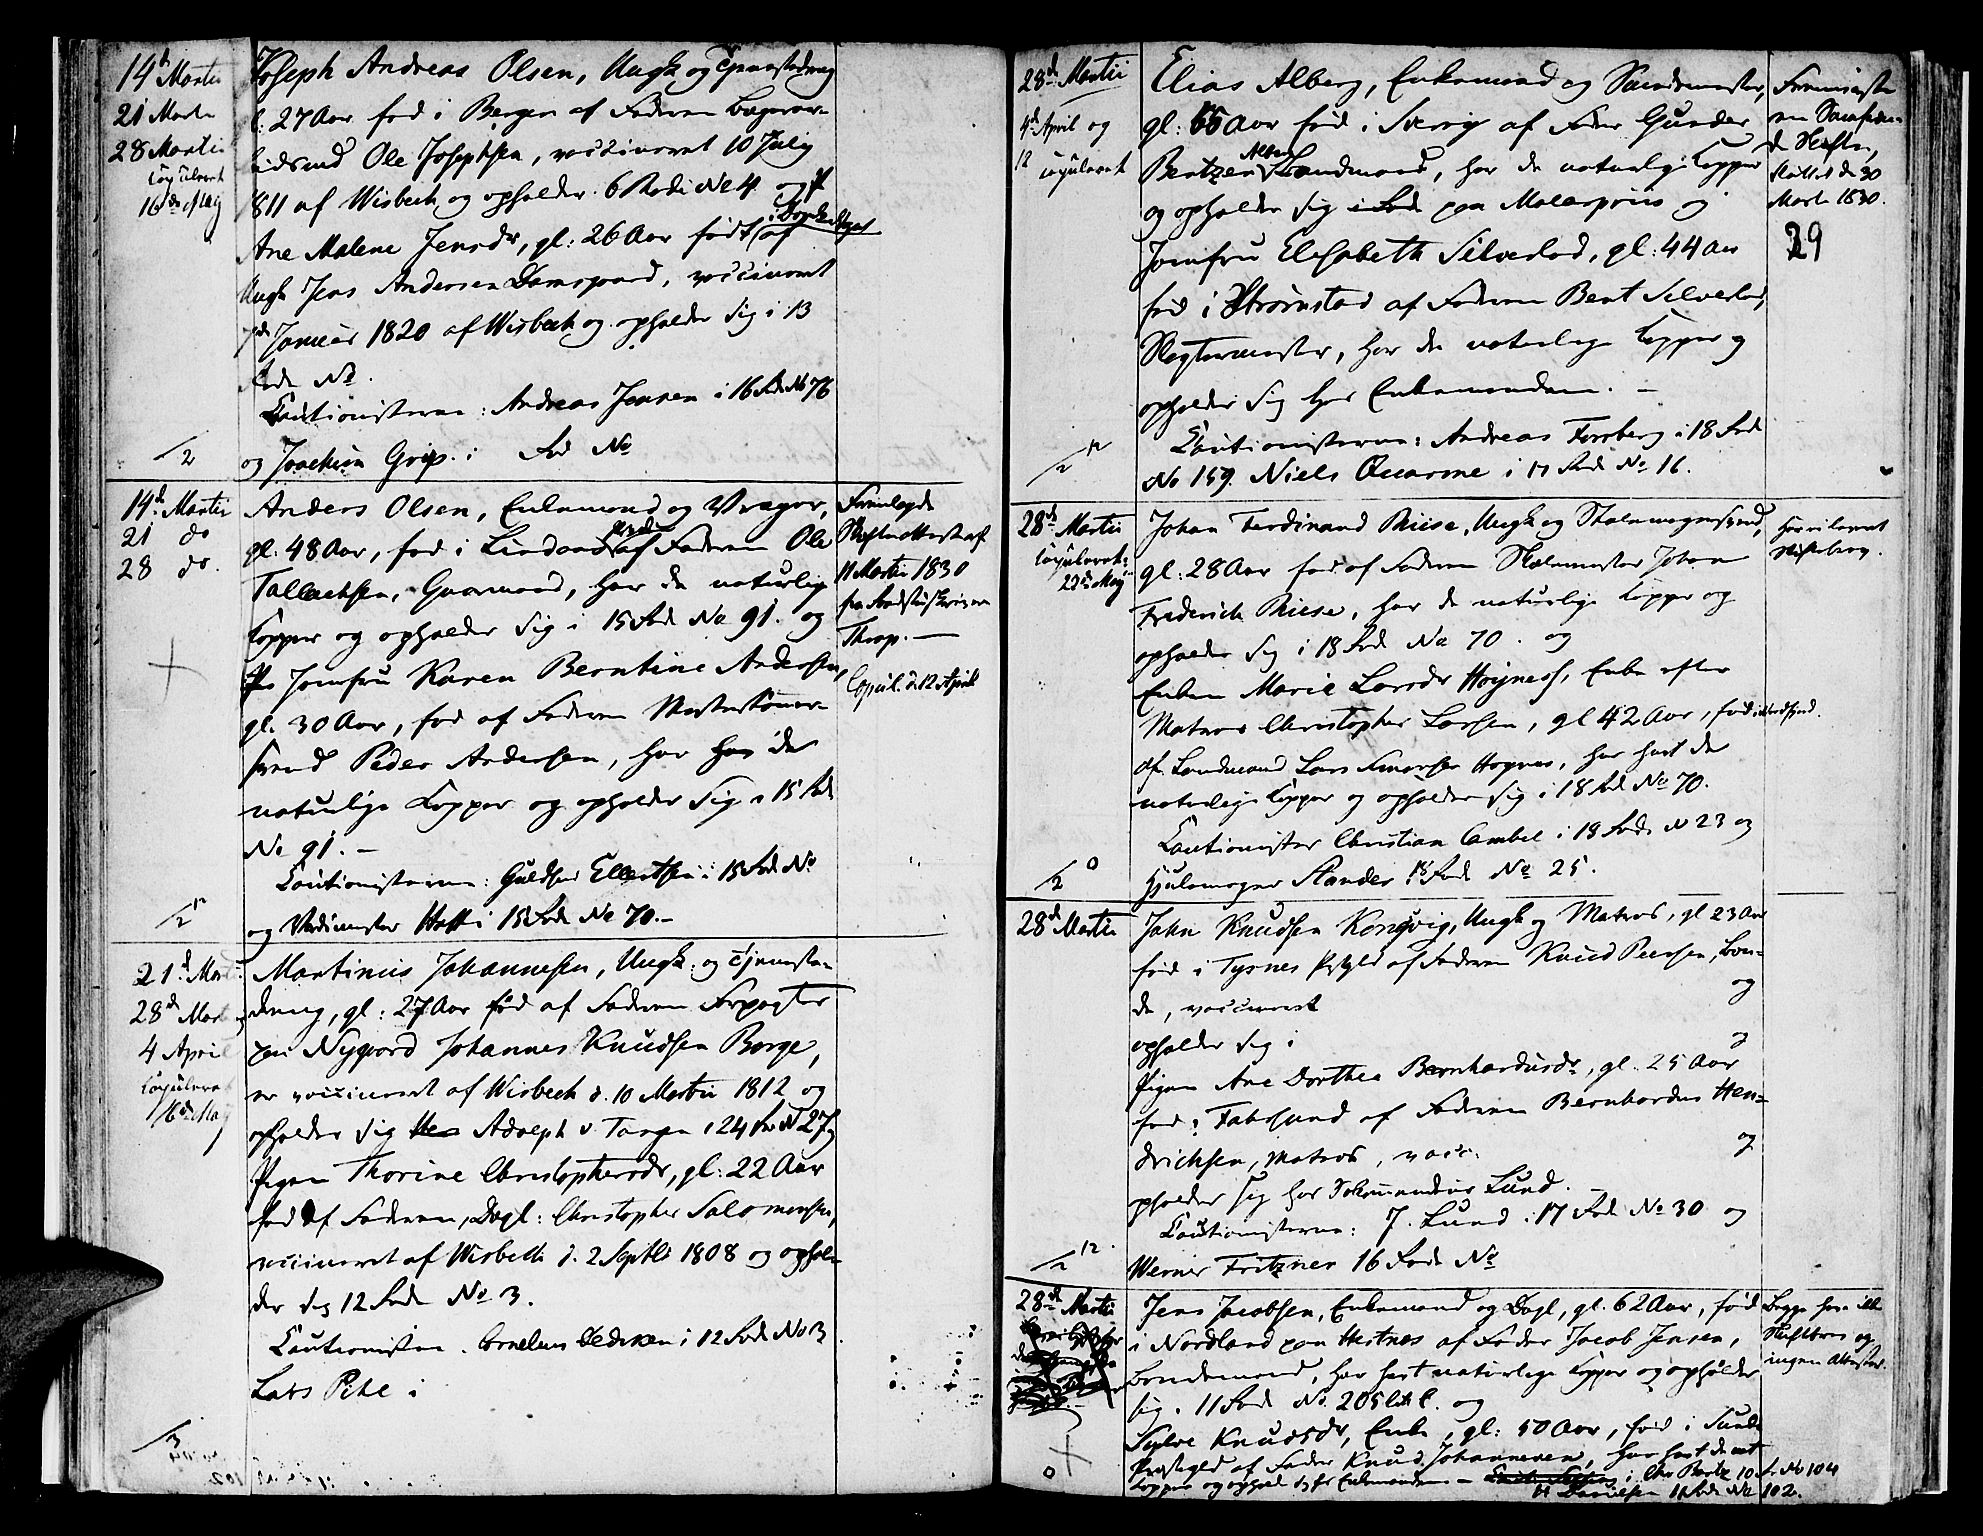 14d Martii
21 Martii
28 Martii
Copuleret
16de May
Joseph Andreas Olsen, Ungk og Tjenestedreng
gl: 27 Aar fød i Bergen af Faderen Bagerar-
beidsmd Ole Josephsen, vaccineret 10 July
1811 af Wisbech og opholder 6 Rode No 4. og
Ane Malene Jensdr, gl: 26 Aar født af
Ungk Jens Andersen Damsgaard, vaccineret
7de Januar 1820 af Wisbech og opholder sig i 13
Rode No.
Cautionisterne: Andreas Jensen i 16 Rode No 76
og Joachim Grip. i Rod No
/2
14d. Martii
21 do
28 do.
Anders Olsen, Enkemand og Vrager,
gl: 48 Aar, fød i Lindaas af Faderen Ole
Tallachsen, Gaarmand, har de naturlig
Kopper og opholder sig i 15 Rod No 91. og
Jomfru Karen Berntine Andersen,
gl. 30 Aar, fød af Faderen
svend Peder Andersen, har hav de
naturlige Kopper og opholder sig i 15 Rod
No 91. —
Cautionisterne: Guldsmd Ellertsen i 15 Rod No
og Holk i 15 Rod No 70.—
/2 12
Fremlagde
Skifte Attest af
11 Martii 1830
fra
Thorp. —
Copul. d. 12 April
21d. Mart:
28d Mart og
4 April
Copuleret
16de May
Martinus Johannesen, Ungk. og Tjenesta-
dreng, gl: 27 Aar fød af Faderen Forpagter
paa Nygaard Johannes Knudsen Borge,
er vaccineret af Wisbech d. 10 Martii 1812 og
opholder sig Adolph v Tangen i 24 Rod N 27 og
Pigen Thorine Christophersdr, gl: 22 Aar
fød af Faderen, Dagl: Christopher Salomonsen,
vaccineret af Wisbech d. 2 Septb 1808 og ophol-
der sig 12 Rode No 3.
Cautionister. Cornelius Pedersen i 12 Rode No 3
Lars Pihl i
/3
28d Martii
4d. April og
12
copuleret
Elias Alberg, Enkemand og
gl: 55 Aar fød i Sverrig af Fader Gunder
Bentzen Landmand, har de naturlige Kopper
og opholder sig i Rode paa Møllerpriis og
Jomfru Elisabeth Silverlod, gl: 44 Aar
fød i Strømstad af Faderen Bent Silverlod,
Slagtermester, har de naturlige Kopper og
opholder sig hos Enkemanden. —
Cautionisterne: Andreas Forsberg i 18 Rode
No 159. Niels Quarme i 17 Rode No 16.
/2 12
d Skifte,
Skattet d. 30
Marts 1830.
29
28de Martii
Copuleret
23de May
Johan Ferdinand Riese, Ungk og Stolemagersvend,
gl: 28 Aar fød af Faderen Skolemester Johan
Frederich Riese, har de naturlige Kopper og
opholder sig i 18 Rod No 70. og
Enken Marie Larsdr Høynes, Enke efter
Matros Christopher Larsen, gl 42 Aar, fød i Nordfjord.
af Landmand Lars Høynes, har havt de
naturlige Kopper og opholder sig i 18 Rod No 70.
Cautionister Christian Cambel i 18 Rode N 23 og
Hjulemager Stander 18 Rode No 25.
/2 0
28d Martii
John Knudsen Kongsvig, Ungk og Matros, gl 23 Aar
fød i Tysnes Prgjld af Faderen Knud Peersen, Bon-
de, vaccineret og
opholder sig i og
Pigen Ane Dorthea Bernhardusdr, gl. 25 Aar
fød i Farsund af Faderen Bernhardus Hen-
drichsen, Matros, vacc. og
opholder sig hos Lund.
Cautionisterne: J. Lund i 17 Rode No 30 og
Werner Fritzner 16 Rode No
/2 12.
28de Martii
Jens Jacobsen, Enkemand og Dagl, gl. 62 Aar, fød
i Nordland paa Hestnes af Fader Jacob Jensen,
Bondemand, har havt naturlige Kopper og opholder
sig i 11 Rode No. 205 lit C. og
Sylve Knudsdr, Enke, gl: 50 Aar, fød i Sunde
Prestegjeld af Fader Knud Johannesen, har havt de nat
Kopper og ophold sig hos Enkemanden — i Chr Bartz 10 Ro No 104
H Danielsen 11 Rode No 102.
Begge have ikke
Skiftebrev og
ingen Attester